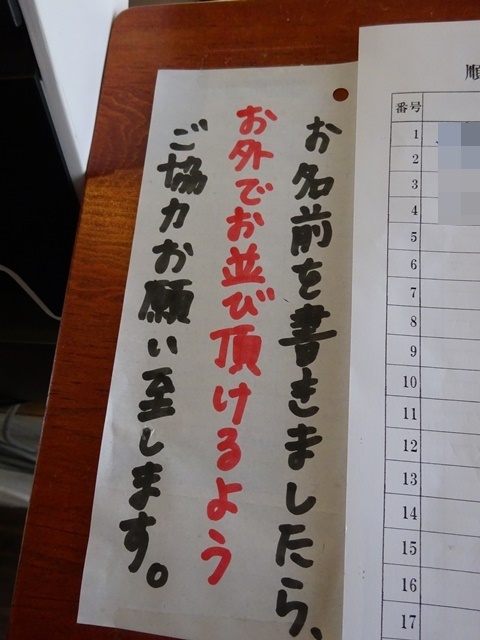 お名前を書きましたら、
お外でお並び頂けるよう
ご協力お願い至します。
順
番号
1
2
3
4
5
6
7
8
9
10
11
12
13
14
15
16
17